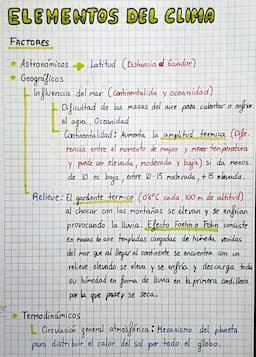 ELEMENTOS DEL CLIMA
FACTORES
Astronómicos → Latitud (Distancia al Ecuador)
Geográficos
Influencia del mar (Continentalida y oceanidad)
Dificultad de las masas del aire para calentar o enfriar
el agua, Oceanidad
Continentalidad: Aumenta la amplitud termica (Dife-
rencia entre el momento de mayor y menor temperatura
y puede ser elevada, moderada y baja) si da menos
de 10 es baja, entre 10-15 moderada, +15 elevada.
Relieve: El gardiente termico (0'6°C cada 100 m de altitud)
al chocar con las montañas se elevan y se enfrian
provocando la lluvia. Efecto Foehn o Föhn consiste
en masas de aire templadas cargadas de humeda, venidas
del mar que al llegar al continente se encuentra con un
relieve elevado se eleva y se enfria y descarga toda
su humedad en forma de lluvia en la primera cordillera
por la que pase y se seca.
Termodinámicos
Circulación general atmosférica: Mecanismo del planeta
para distribuir el calor del sol por todo el globo.